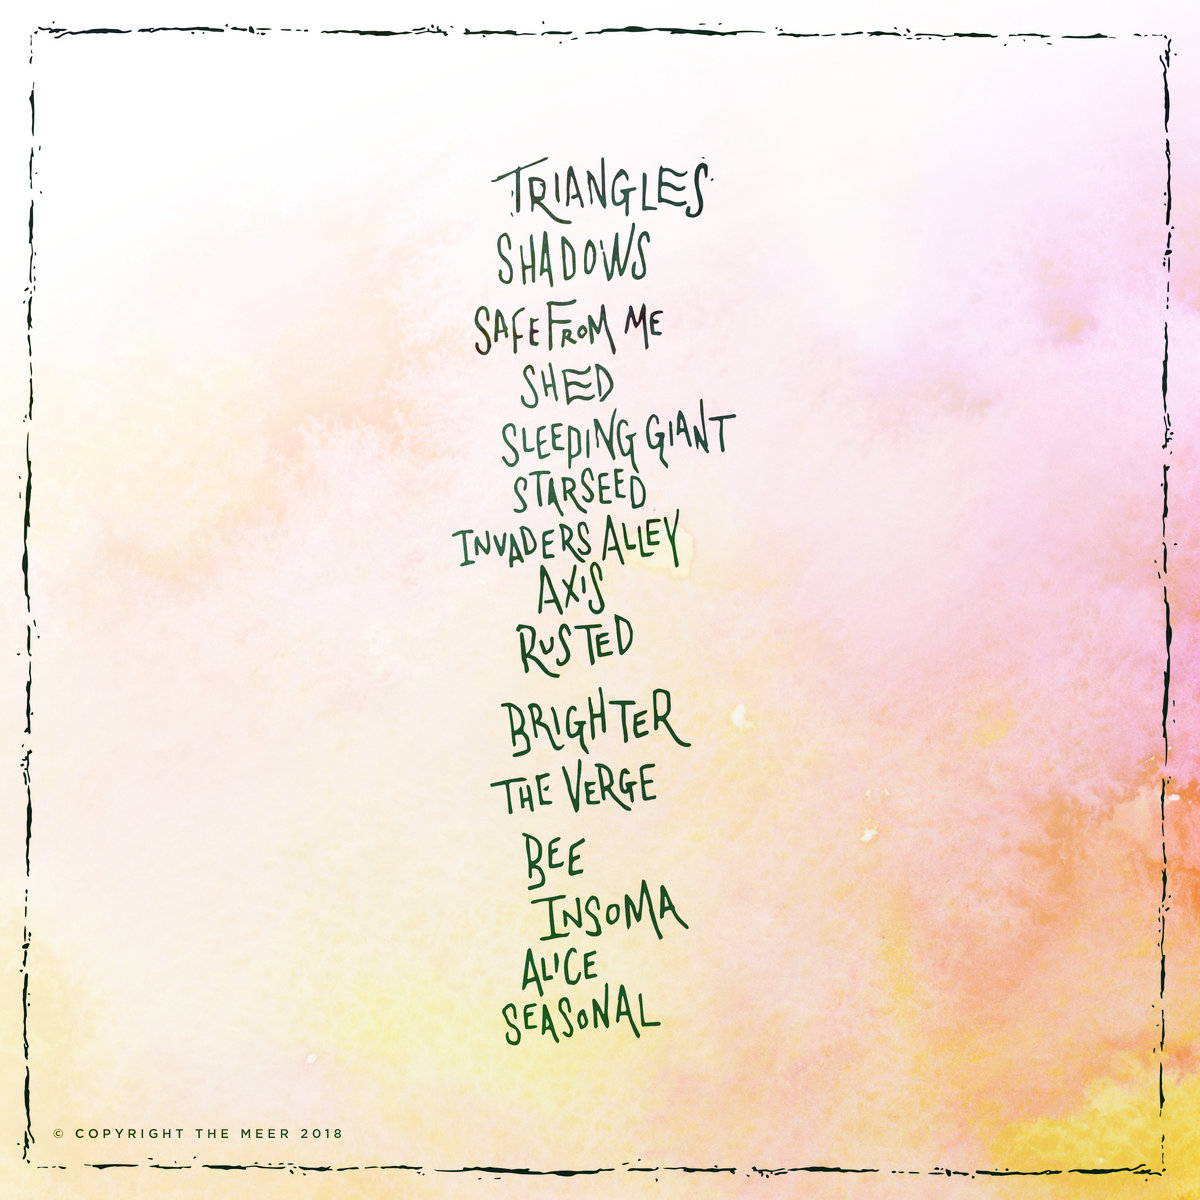 TRIANGLES
SHADOWS
SAFE FROM ME
SHED
SLEEPING GIANT
STARSEED
INVADERS ALLEY
AXIS
RUSTED
BRIGHTER
THE VERGE
BEE
INSOMA
ALICE
SEASONAL
© COPYRIGHT THE MEER 2018